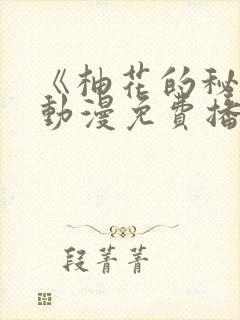 《柚花的秘
動漫免費播
段菁菁